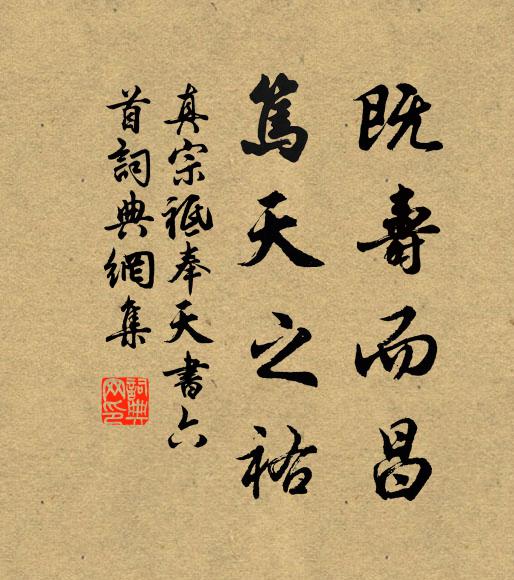 既壽而昌
篤天之祐
真宗祗奉天書六
首詞典網集
詞典網印